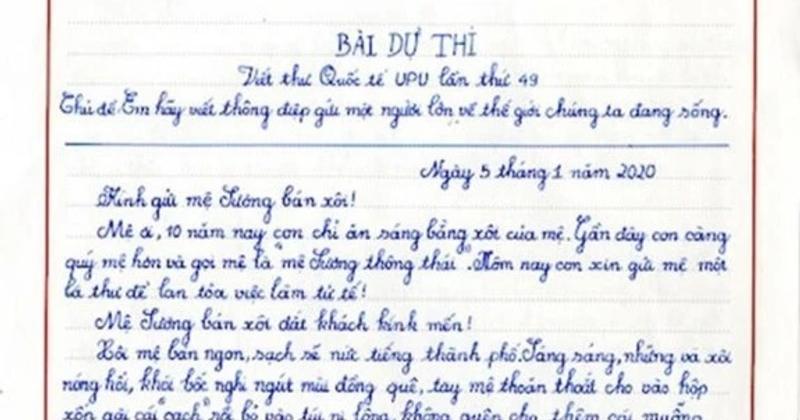 BÀI DỰ THI
Viết thư Quốc tế UPU lần thứ 49
Chủ đề: Em hãy viết thông điệp gửi một người lớn về thế giới chúng ta đang sống.
Ngày 5 tháng 1 năm 2020
Kính gửi mệ Sương bán xôi!
Mệ ơi, 10 năm nay con chỉ ăn sáng bằng xôi của mệ. Gần đây con càng
quý mệ hơn và gọi mệ là "mệ Sương thông thái". Hôm nay con xin gửi mệ một
lá thư để lan tỏa việc làm tử tế!
Mệ Sương bán xôi đắt khách kính mến!
Xôi mệ bán ngon, sạch sẽ nức tiếng thành phố. Sáng sáng, những vá xôi
nóng hổi, khói bốc nghi ngút mùi đồng quê, tay mệ thoăn thoắt cho vào hộp
xốp gài cái "cạch" rồi bỏ vào túi ni lông, không quên cho thêm cái muỗng